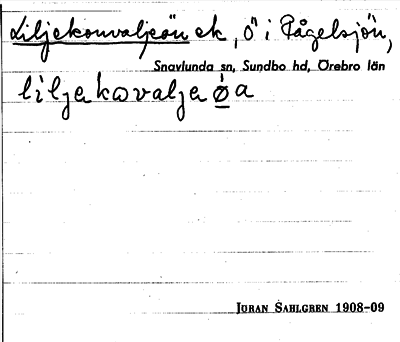 Liljekonvaljeön ek, ö i Fågelsjön,
Snavlunda sn, Sundbo hd, Örebro län
liljekωvalja ø̲a
JÖRAN SAHLGREN 1908-09